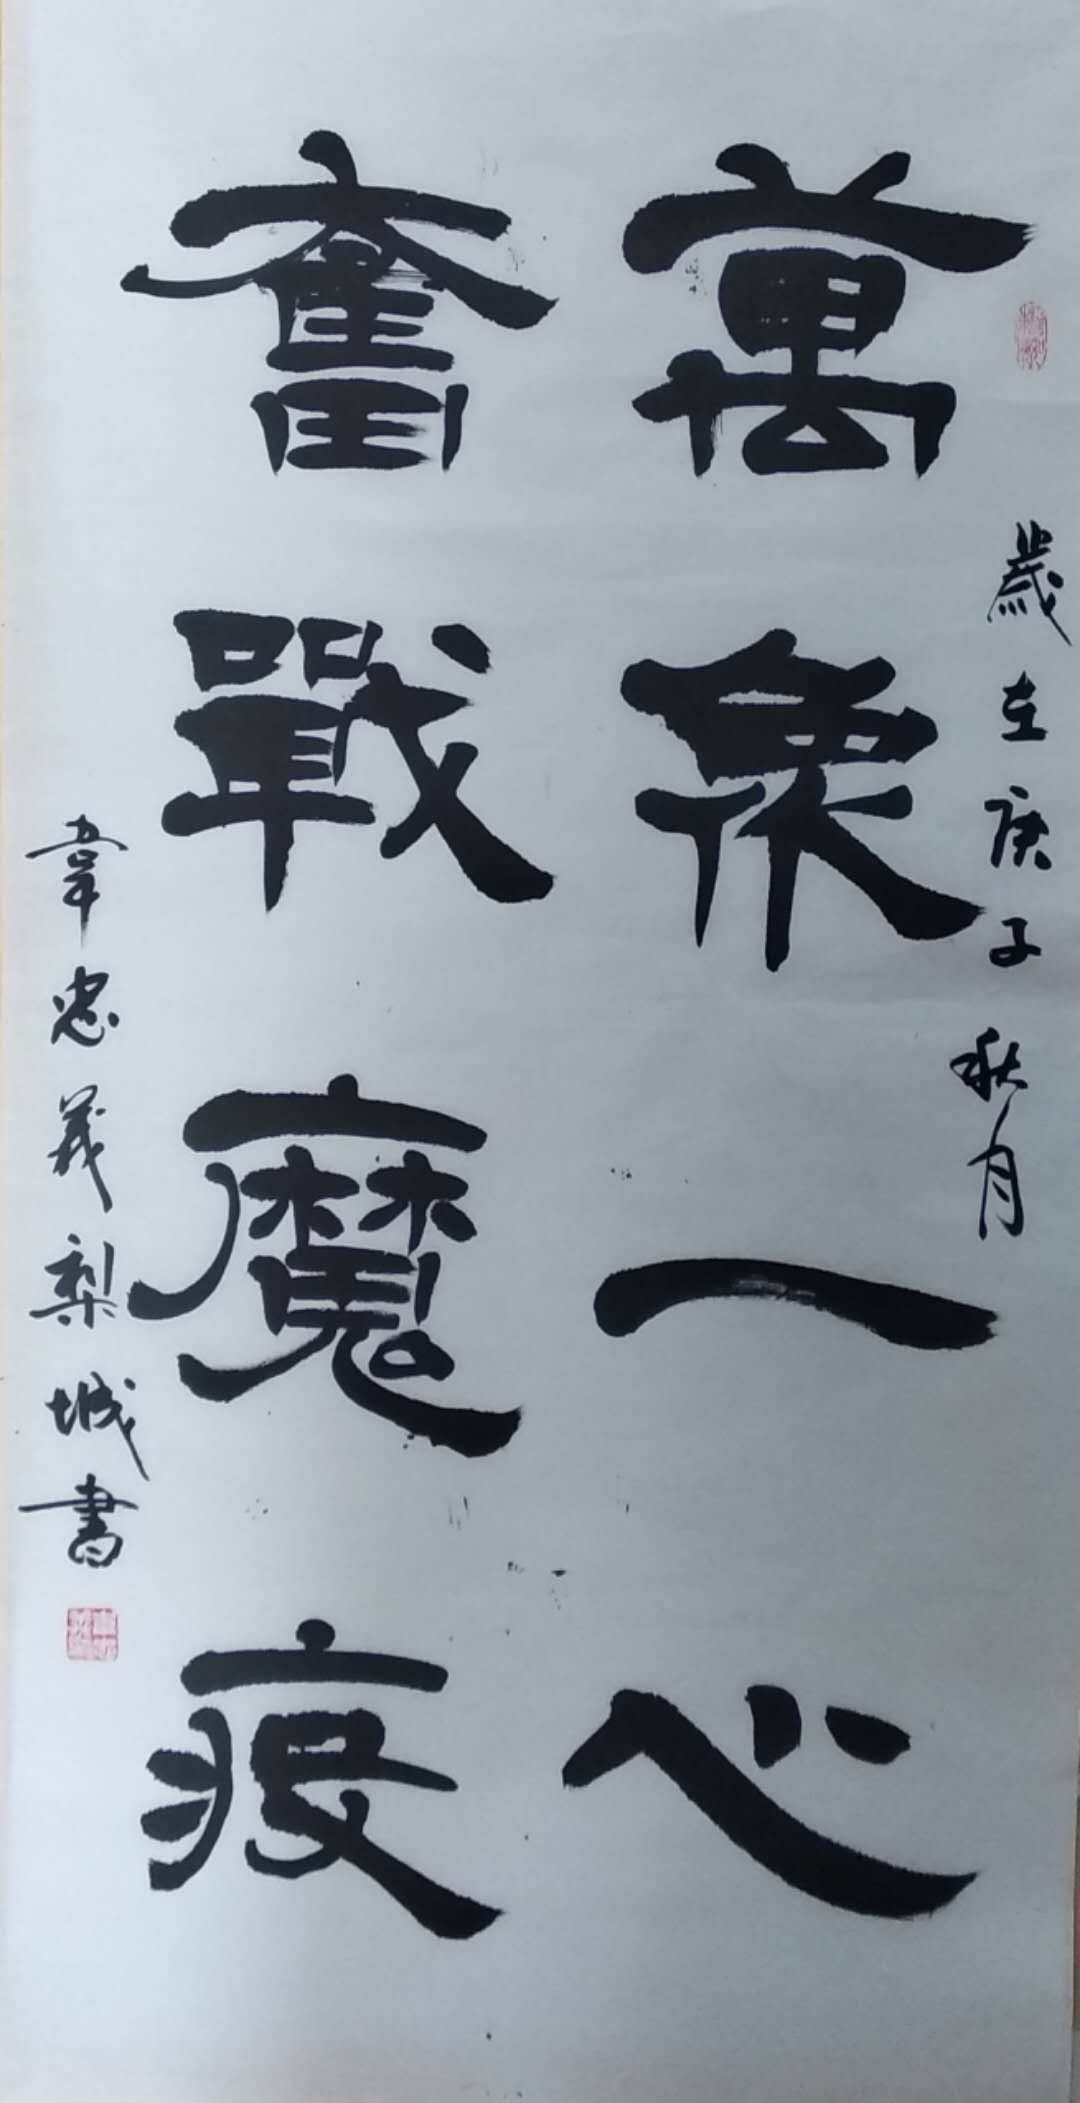 歲在庚子秋月
萬眾一心
奮戰魔疫
韋忠義梨城書